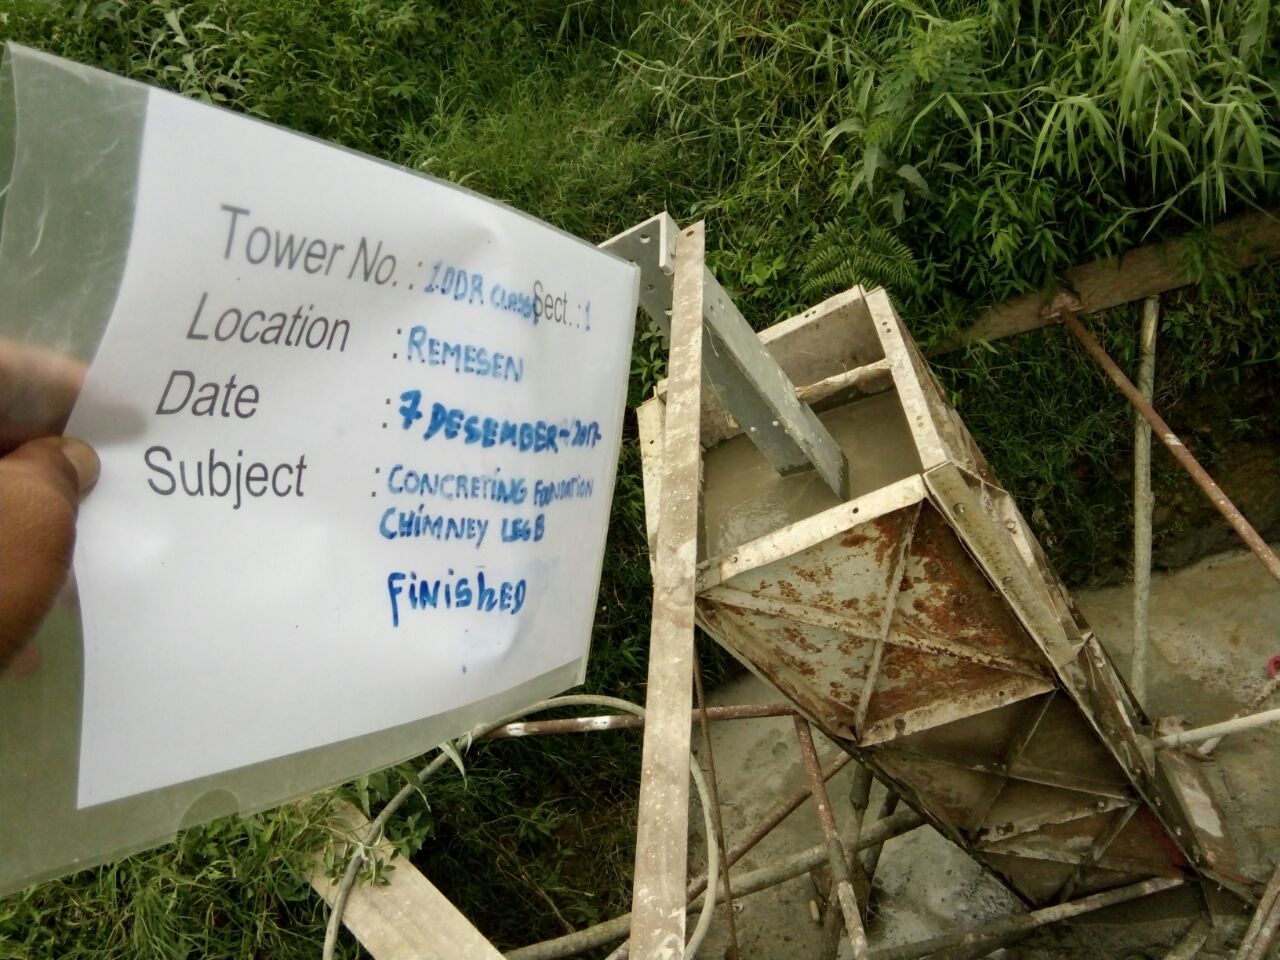 Tower No. : 10DR CLASS Sect. : 1
Location : REMESEN
Date : 7 DESEMBER-2017
Subject : CONCRETING FOUNDATION
CHIMNEY LEG B
FINISHED